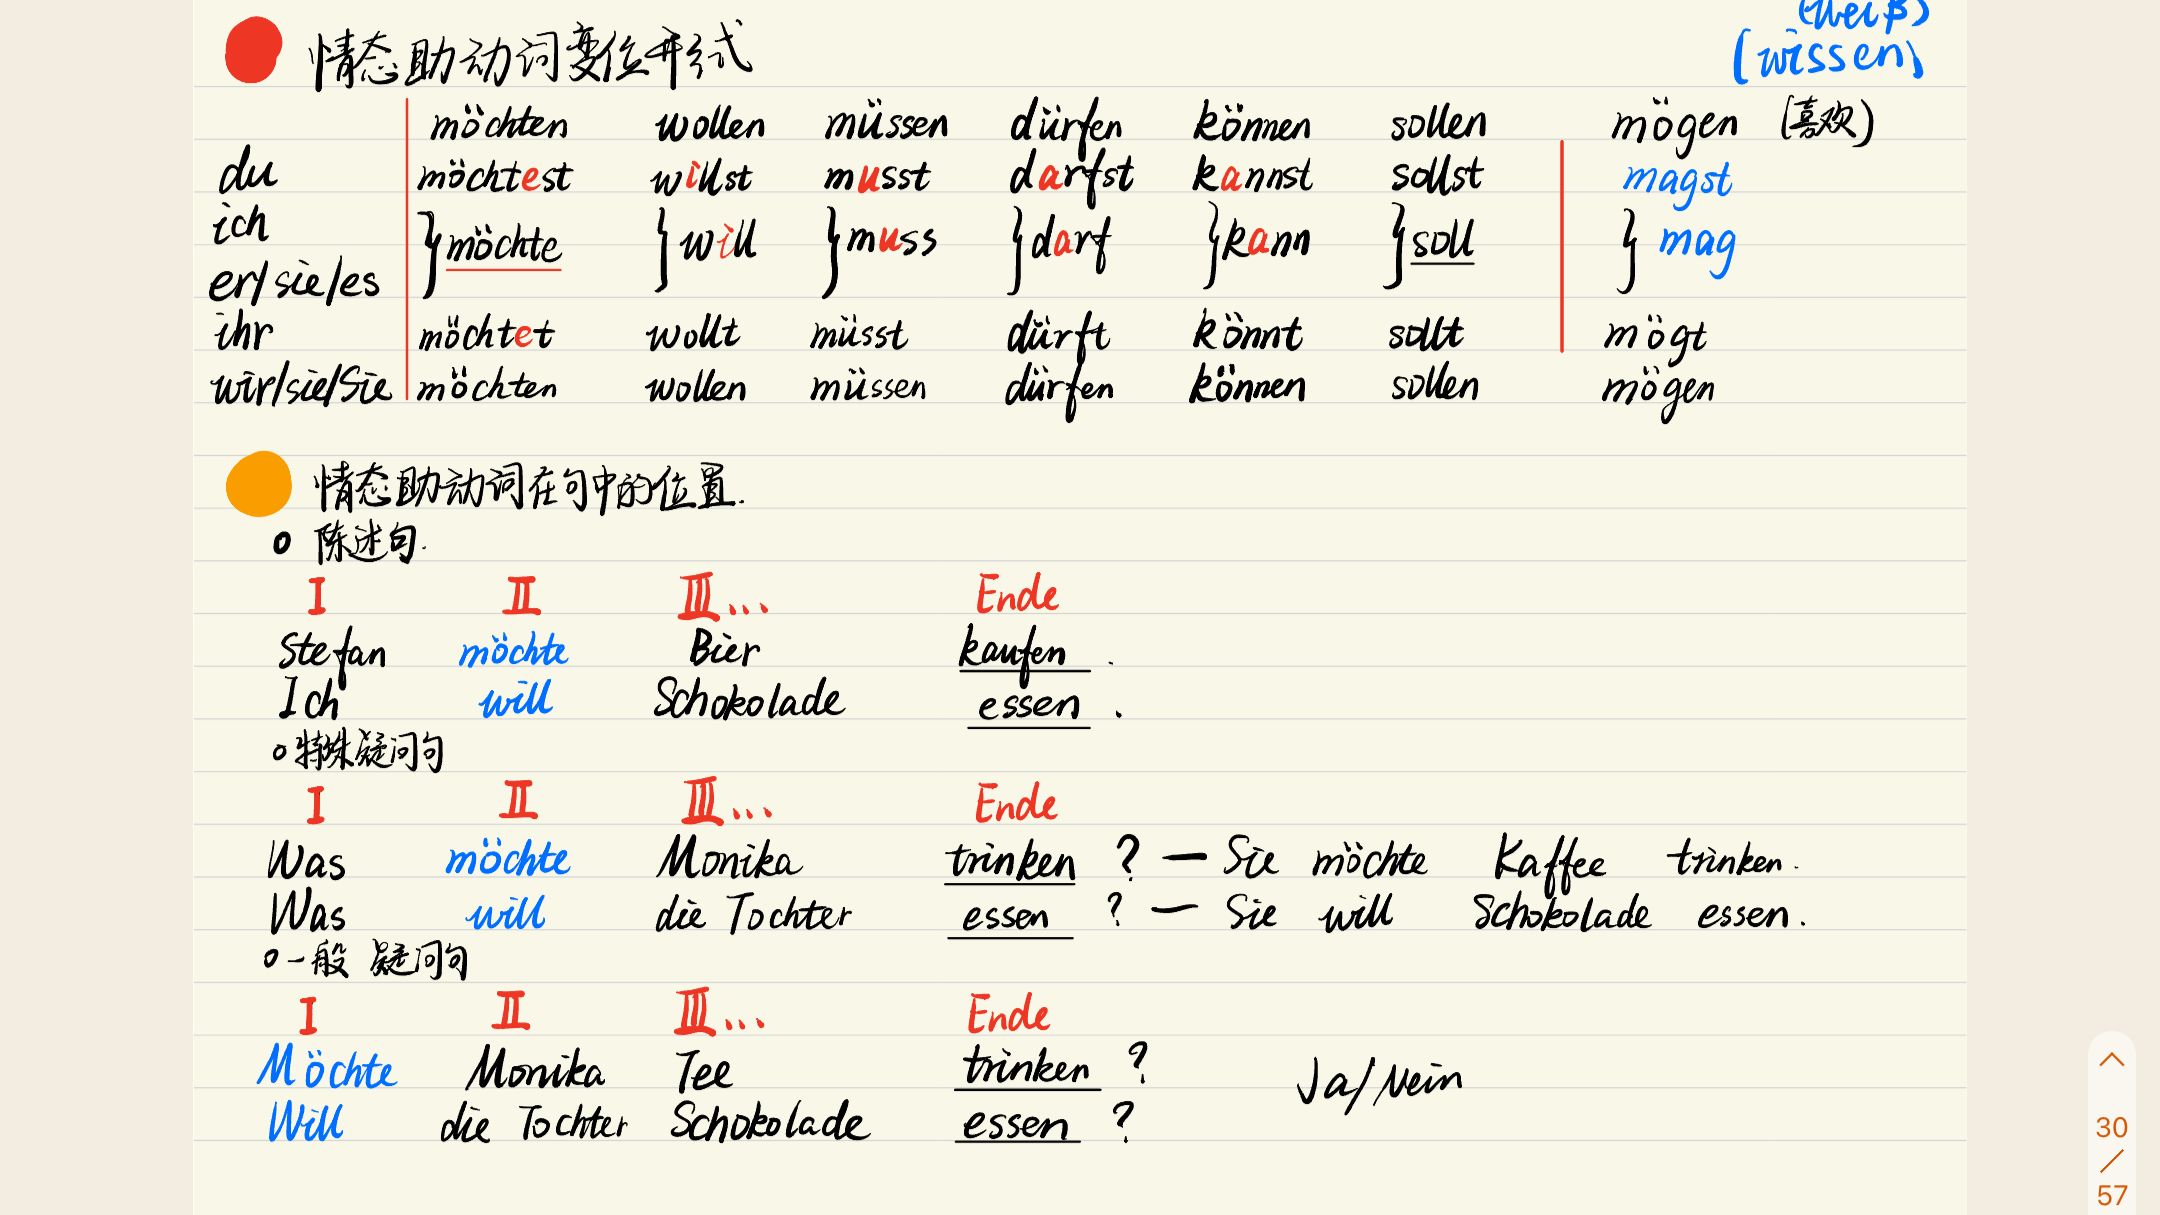 (weiß)
情态助动词变位形式 (wissen)
möchten wollen müssen dürfen können sollen mögen (喜欢)
du möchtest willst musst darfst kannst sollst magst
ich
} möchte } will } muss } darf } kann } soll } mag
er/sie/es
ihr möchtet wollt müsst dürft könnt sollt mögt
wir/sie/Sie möchten wollen müssen dürfen können sollen mögen
情态助动词在句中的位置.
陈述句.
I II III... Ende
Stefan möchte Bier kaufen .
Ich will Schokolade essen .
特殊疑问句
I II III... Ende
Was möchte Monika trinken ? — Sie möchte Kaffee trinken.
Was will die Tochter essen ? — Sie will Schokolade essen.
一般疑问句
I II III... Ende
Möchte Monika Tee trinken ? Ja/Nein
Will die Tochter Schokolade essen ?
30
/
57